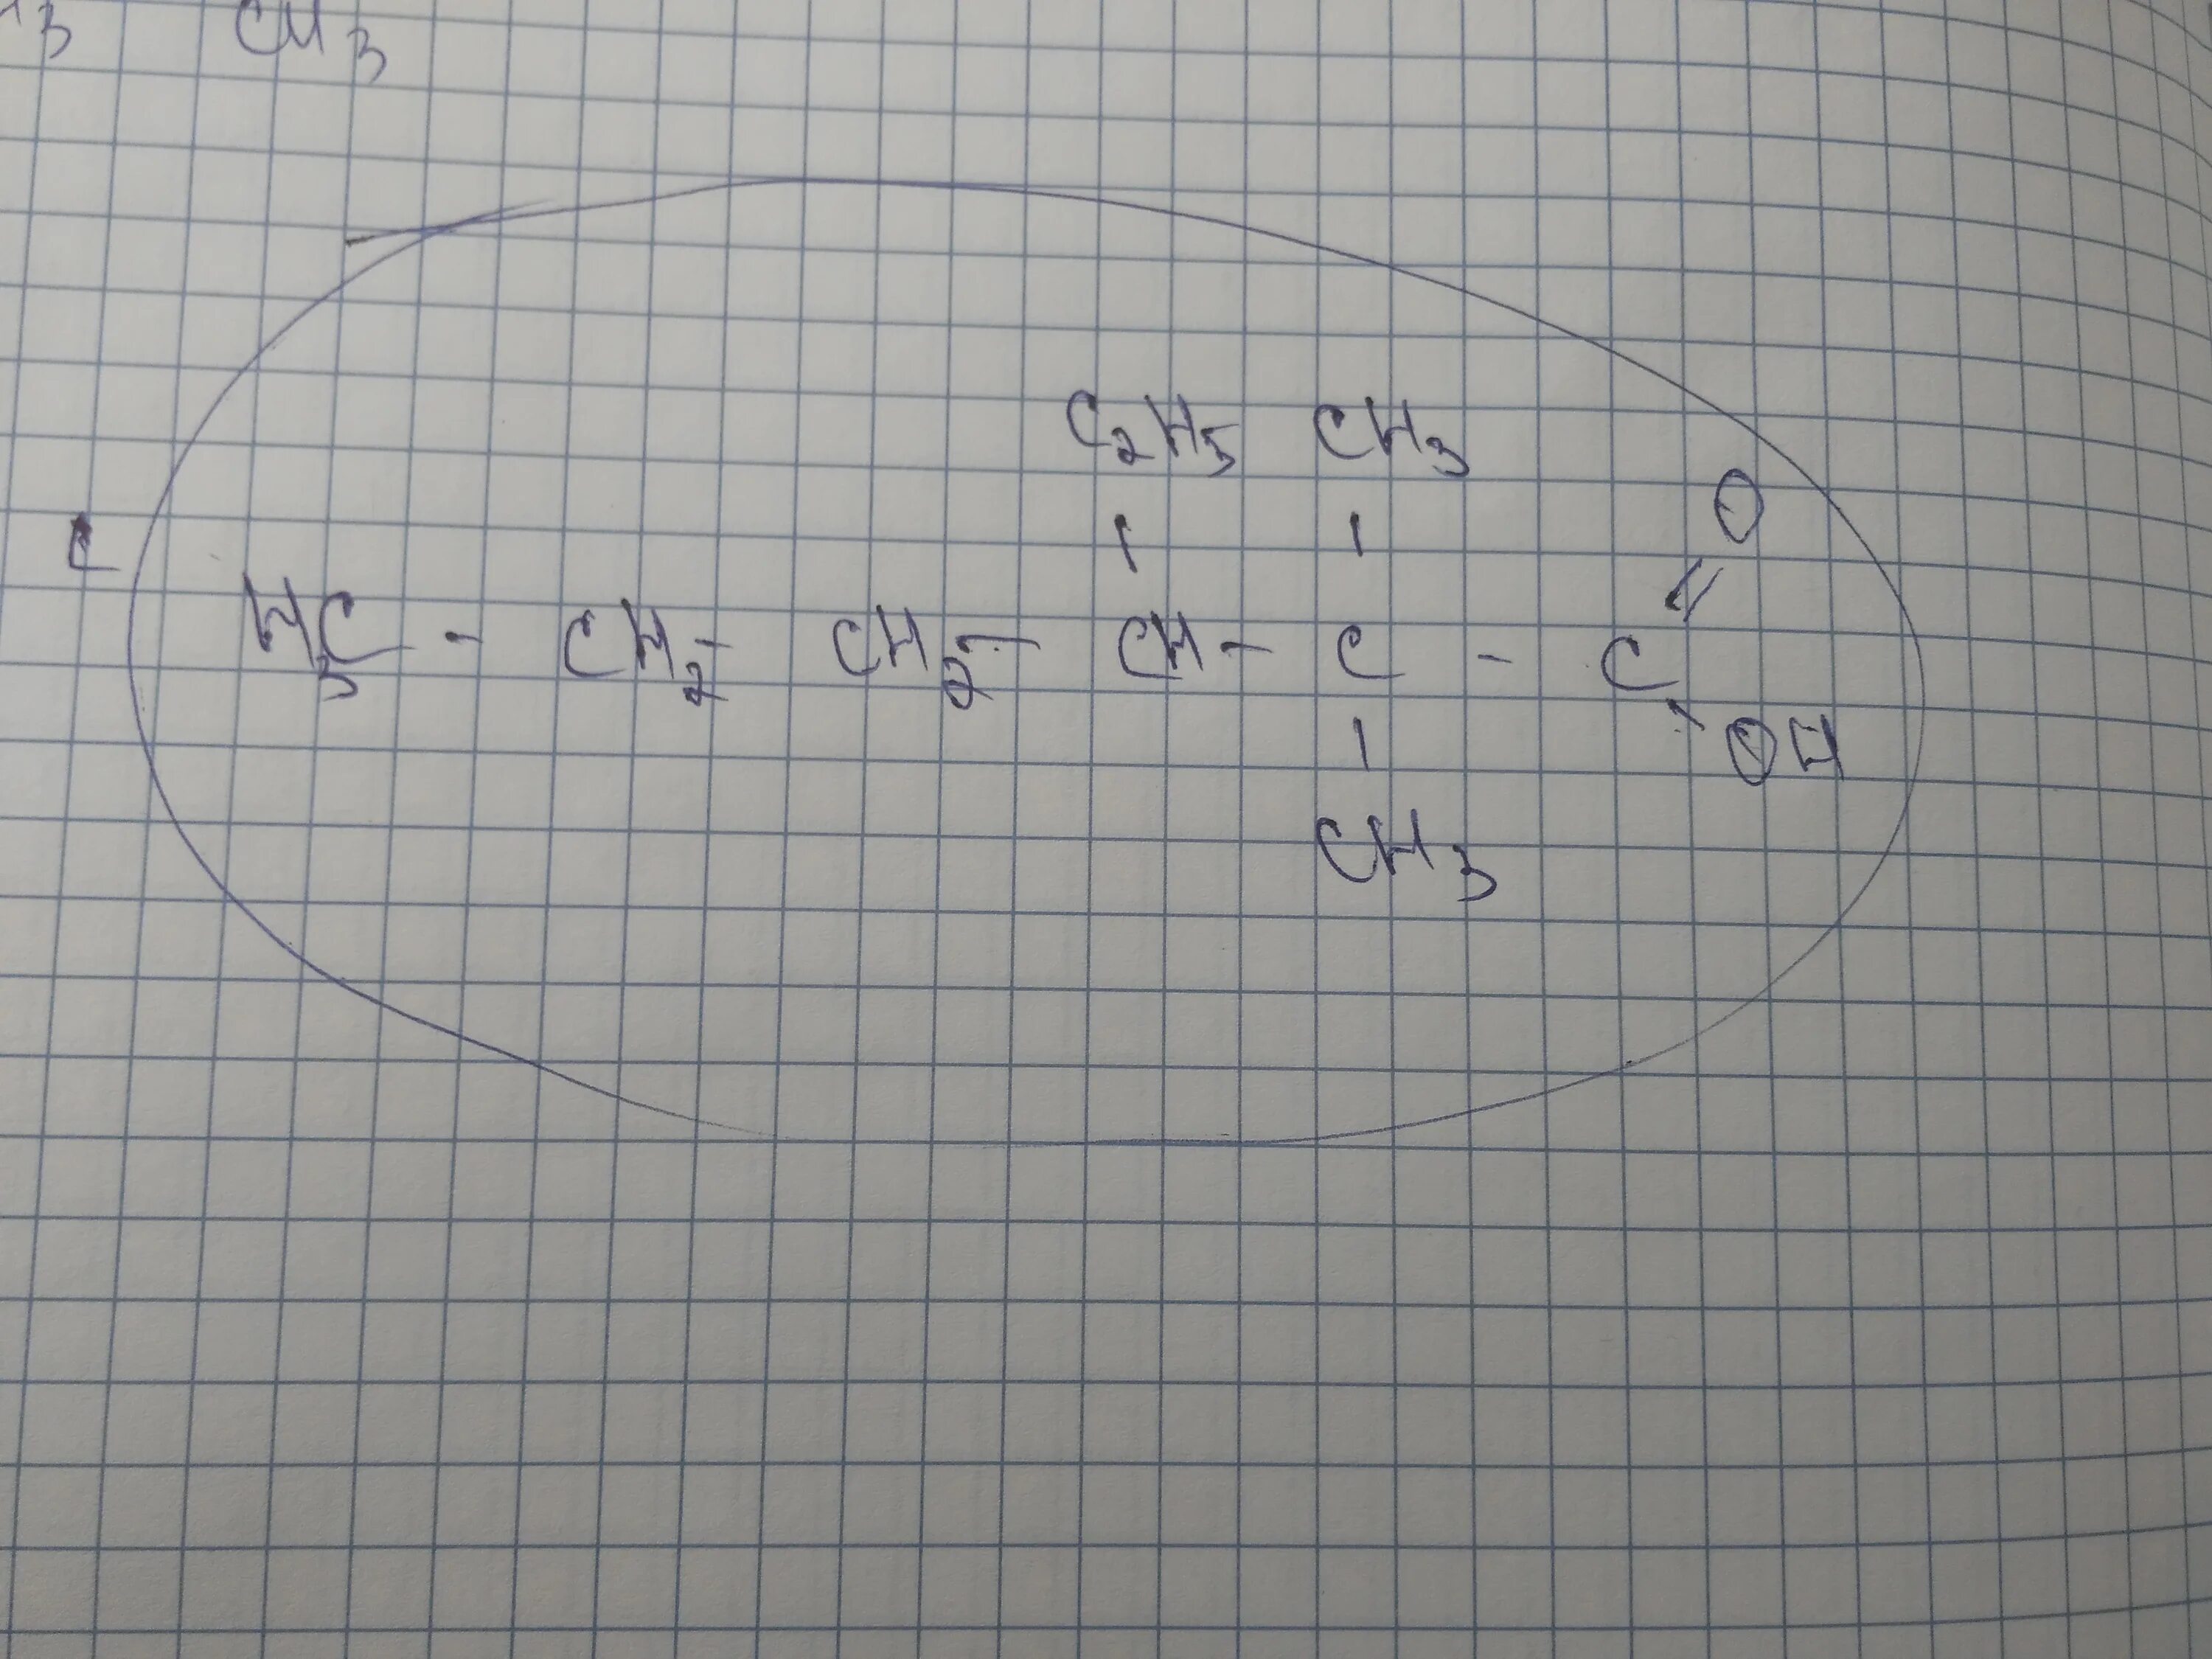 CH3
C2H5 CH3
O
C
H3C - CH2 - CH2 - CH - C - C
OH
CH3